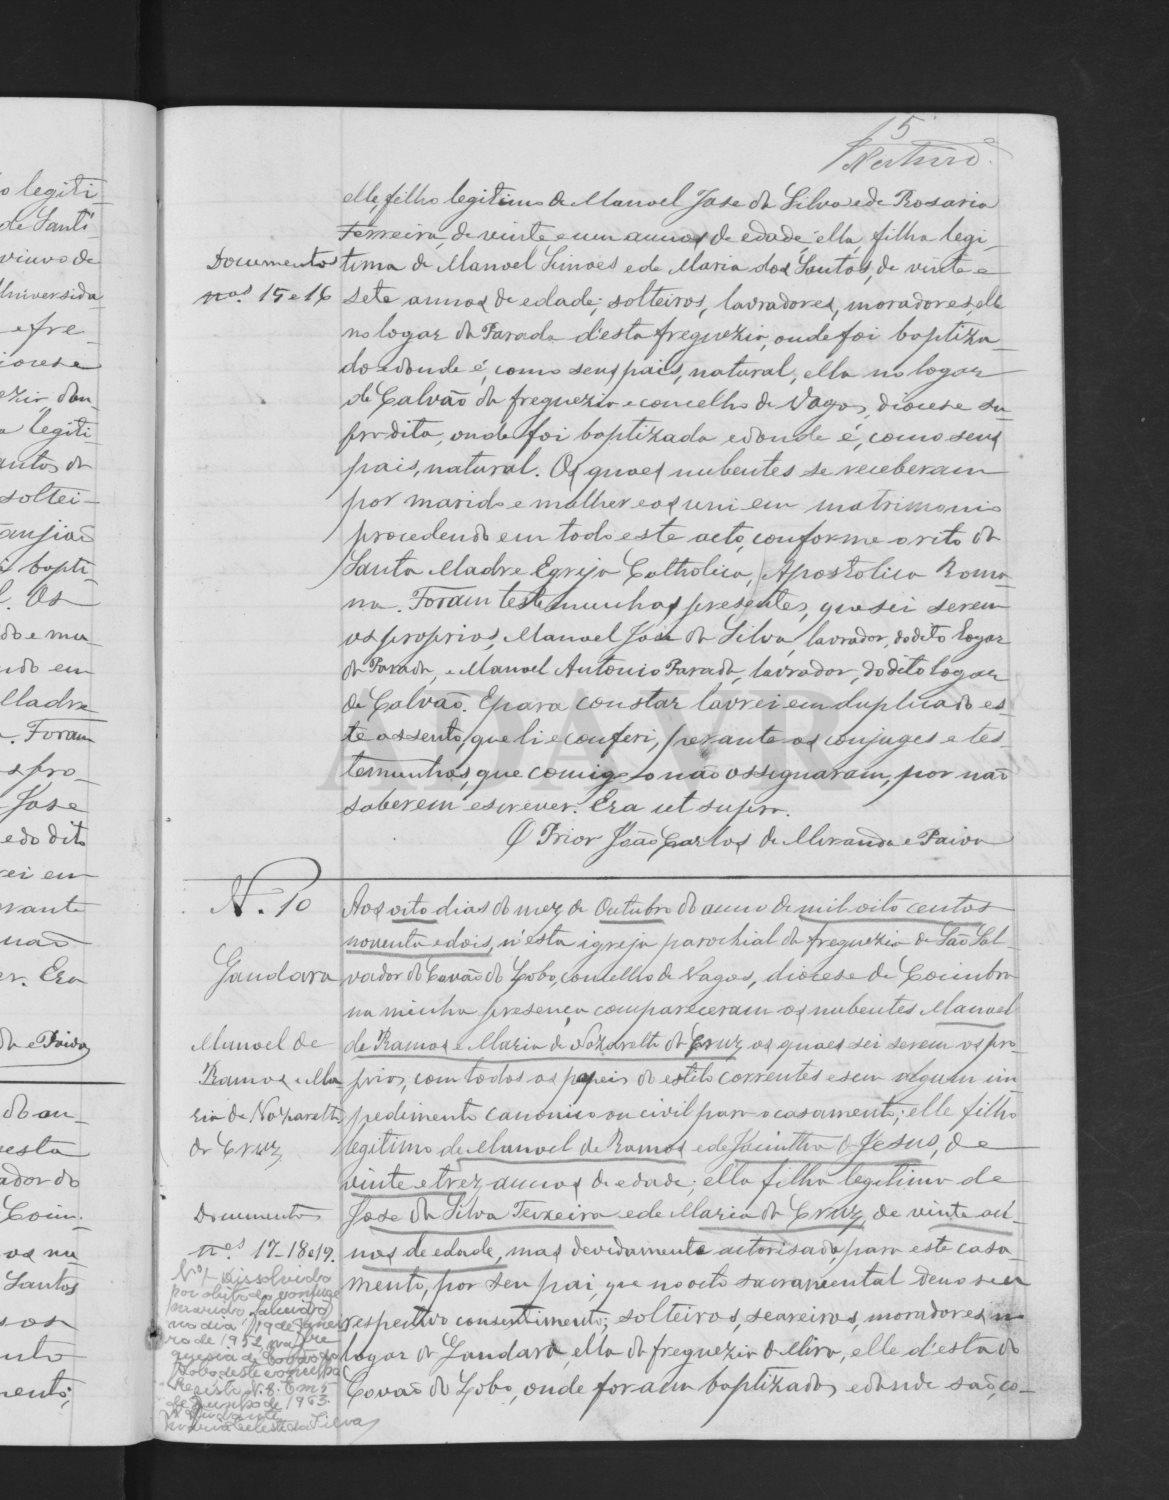 5
elle, filho legitimo de Manoel Jose da Silva e de Rosaria
Ferreira, de vinte e um annos de edade, ella, filha legi-
tima de Manoel Simões e de Maria dos Santos, de vinte e
sete annos de edade; solteiros, lavradores, moradores, elle
no logar da Parada d'esta freguezia, onde foi baptiza-
do e donde é, como seus pais, natural, ella no logar
de Calvão da freguezia e concelho de Vagos, diocese su-
pradita, onde foi baptizada e donde é, como seus
pais, natural. Os quaes nubentes se receberam
por marido e mulher e os uni em matrimonio
procedendo em todo este acto, conforme o rito da
Santa Madre Egreja Catholica, Apostolica Roma-
na. Foram testemunhas presentes, que sei serem
os proprios, Manoel José da Silva, lavrador, do dito logar
da Parada, e Manoel Antonio Parada, lavrador, do dito logar
de Calvão. E para constar lavrei em duplicado es-
te assento, que li e conferi, perante os conjuges e tes-
temunhas, que comigo o não assignaram, por não
saberem escrever. Era ut supra.
O Prior João Carlos de Miranda e Paiva
Documentos
nos. 15 e 16
N. 10
Gandara
Manoel de
Ramos e Ma-
ria de Nazareth
da Cruz
Documentos
nos. 17-18 e 19.
Nº 1 - Dissolvido
por obito do conjuge
marido, falecido
no dia 19 de Janei
ro de 1952, na fre-
guesia de Covão do
Lobo deste concelho
Registo N. 8. Em 5
de Junho de 1963.
A Ajudante
Maria Celeste da Silva
Aos oito dias do mez de Outubro do anno de mil oito centos
noventa e dois, n'esta igreja parochial da freguezia de São Sal-
vador do Covão do Lobo, concelho de Vagos, diocese de Coimbra
na minha presença compareceram os nubentes Manoel
de Ramos e Maria de Nazareth da Cruz os quaes sei serem os pro-
prios, com todos os papeis do estilo correntes e sem algum im-
pedimento canonico ou civil para o casamento; elle filho
legitimo de Manoel de Ramos e de Jacintha de Jesus, de
vinte e trez annos de edade; ella filha legitima de
Jose da Silva Teixeira e de Maria da Cruz, de vinte an-
nos de edade, mas devidamente autorisada, para este casa-
mento, por seu pai, que no acto sacramental deu o seu
respectivo consentimento; solteiros, seareiros, moradores no
logar da Gandara, ella da freguezia de Mira, elle d'esta do
Covão do Lobo, onde foram baptizados e donde são, co-
o legiti-
de Santi-
viuvo de
Universida
e fre-
a legiti-
antos da
soltei-
a bapti-
Os
do e mu-
ndo em
Madre
Foram
s pro-
Jose
e do dito
rei em
rante
não
er. Era
da e Paiva
do an-
esta
ador do
Coim-
os nu-
Santos
mento;
ADAVR